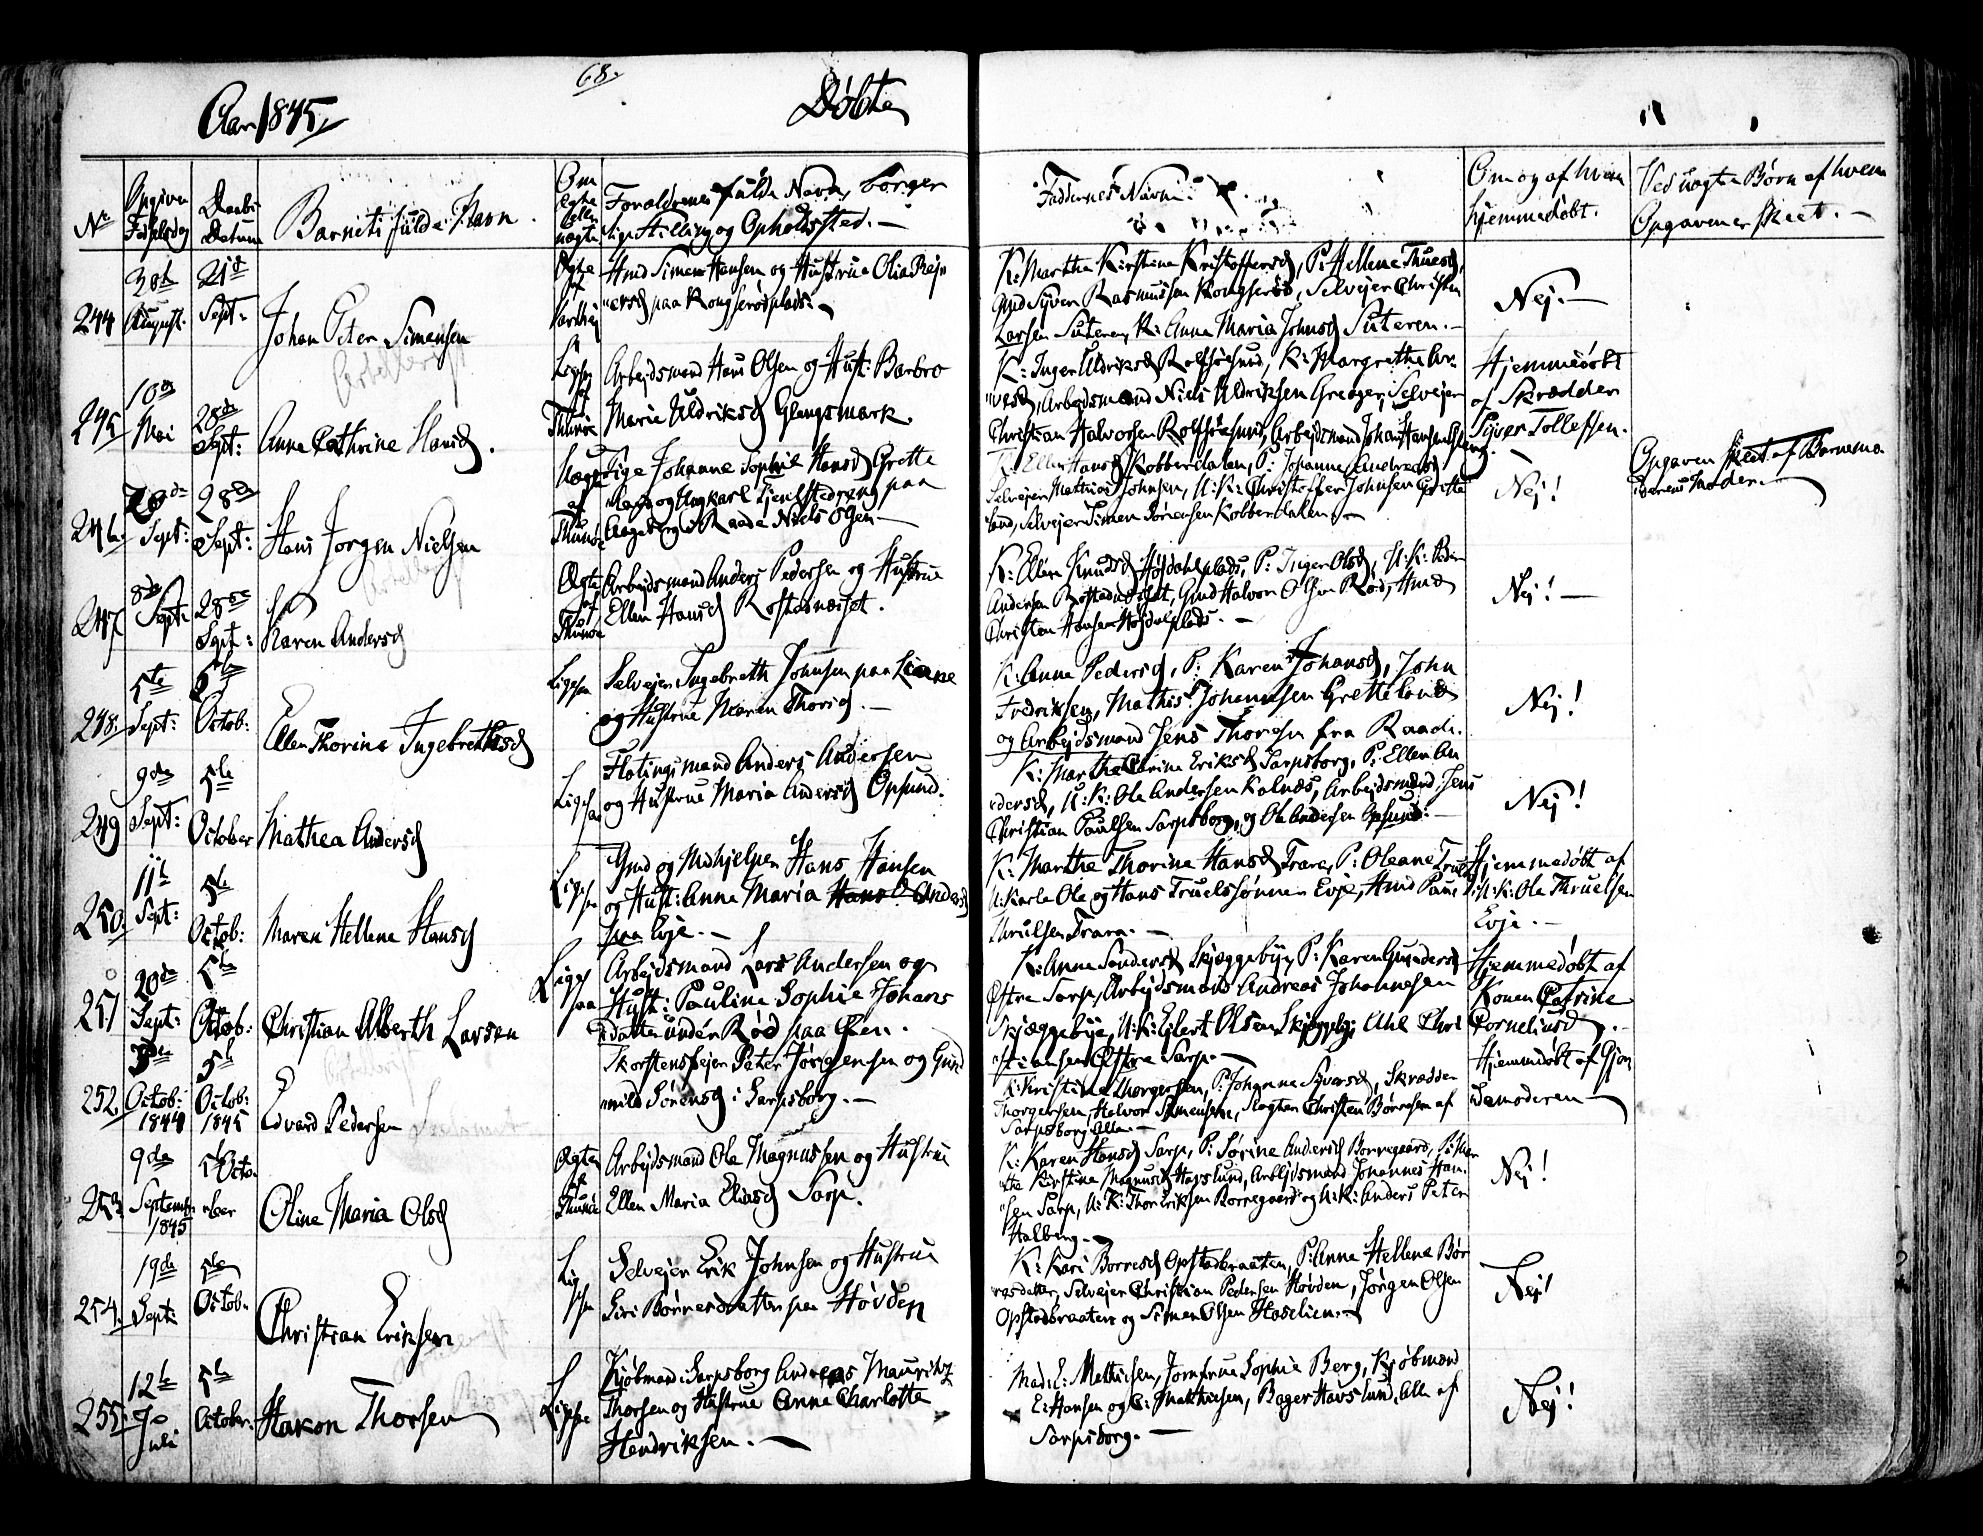 68.
Aar 1845.
Døbte
No
Opgiven Fødselsdag
Daabs Datum
Barnets fulde Navn.
Om Egte eller uægte
Forældrenes fulde Navn, borger
lige Stilling og Opholdssted. —
Faddernes Navn.
Om og af hvem
hjemmedøbt.
Ved uægte Børn af hvem
Opgaven er skeet. —
244
28de August.
21de Sept:
Johan Peter Simensen
Ægte
Hmd Simen Hansen og Hustrue Olia Rejn
ersd paa Kongsrødplads. —
K: Marthe Kirstine Kristoffersd, P: Hellene Thuesd,
Gmd Syver Rasmussen Kongsrød, Selvejer Christen
Larsen Suteren, K: Anna Maria Johnsd Suteren. —
Nej. —
245
10de Mai
28de Sept:
Anne Cathrine Hansd.
Ligesaa af Thunøe
Arbejdsmand Hans Olsen og Hust: Barbro
Marie Uldriksd Glengsmark.
K: Inger Uldriksd Rolfsøesund, K: Margrethe
Arbejdsmand Niels Uldriksen Greager, Selvejer
Christian Halvorsen Rolfsøesund, Arbejdsmand Johan Hansen
Hjemmedøbt
af Skrædder
Syver Tollefsen.
246.
28de Sept:
Hans Jørgen Nielsen
Uægte af Thunøe
Pige Johanne Sophie Hansd Grette
Niels Olsen —
K: Ellen Hansd Kobberdalen, P: Johanne Andreasd
Selvejer Mathias Johnsen, U: K: Christoffer Johnsen Grette
land, Selvejer Simen Sørensen Kobberdalen. —
Nej!
Opgaven skeet af Barnema
Moder. —
247.
8de Sept:
28de Sept:
Karen Andersd
Ægte af Thunøe
Arbejdsmand Anders Pedersen og Hustrue
Ellen Hansd Rostadnæiset.
K: Ellen Knudsd Høidahlplads, P: Inger Olsd, U: K: Peder
Andersen Rostadnæiset, Gmd Halvor Olsen Rød, Hmd
Christen Hansen Høidalplads. —
Nej! —
248.
5te Sept:
5te Octob:
Ellen Thorine Ingebrethsd
Ligesaa
Selvejer Ingebreth Johnsen paa Liane
og Hustrue Maren Thorisd. —
K: Anne Pedersd, P: Karen Johansd, John
Fredriksen, Mathis Johannesen Gretteland
og Arbejdsmand Jens Thorsen fra Raade.
Nej!
249
9de Sept:
5te October
Mathea Andersd
Ligesaa
Flotingsmand Anders Andersen
og Hustrue Maria Andersd Opsund.
K: Marthe Carine Eriksd Sarpsborg, P: Ellen An
dersd, U: K: Ole Andersen Kalnæs, Arbejdsmand Jens
Christian Paulsen Sarpsborg, og Ole Andersen Opsund. —
Nej!
250.
11te Sept:
5te Octob:
Maren Hellene Hansd
Ligesaa
Gmd og Medhjelper Hans Hansen
og Hust: Anne Maria Hansd Andersd
paa Evje. —
K: Marthe Thorine Hansd Trara, P: Oleane Truls
U: Karle Ole og Hans Truelssønner Evje, Hmd Paul
Thrulsen Trara. —
Hjemmedøbt af
U: K: Ole Thruelsen
Evje. —
251
20de Sept:
5te Octob:
Christian Alberth Larsen
Ligesaa
Arbejdsmand Lars Andersen og
Hust: Pauline Sophie Johans
datter under Rød paa Øen.
K: Anne Sandersd Skjæggebye, P: Karen Gundersd
Østre Sarp, Arbejdsmand Andreas Johannesen
Skjæggebye, U: K: Ejlert Olsen Skjæggeby, Chri
stiansen Østre Sarp. —
Hjemmedøbt af
Konen Catrine
Corneliusd. —
252.
3de Octob: 1844
5te Octob: 1845
Edvard Pedersen
Skorstensfejer Peter Jørgensen og Gun
nild Sørensd i Sarpsborg. —
K: Kristine Thorgersen, P: Johanne Syversd, Skrædder
Thorgersen, Halvor Simensen, Slagter Christen Børresen af
Sarpsborg Alle. —
Hjemmdøbt af Gjor
demoderen —
253
9de September 1845
5te October
Oline Maria Olsd
Ægte af Thunøe
Arbejdsmand Ole Magnussen og Hustrue
Ellen Maria Eliasd Sarp.
K: Karen Hansd Sarp, P: Sørine Andersd Borregaard, P: Mar
the Kirstine Magnusd Hafslund, Arbejdsmand Johannes Han
sen Sarp, U: K: Thor Eriksen Borregaard og U: K: Anders Peter
Halberg. —
Nej!
254.
19de Sept:
5te Octob:
Christian Eriksen
Ligesaa
Selvejer Erik Johnsen og Hustrue
Siri Børresdatter paa Høvden
K: Kari Borresd Opstadbraaten, P: Anne Hellene Bør
resdatter, Selvejer Christian Pedersen Høvden, Jørgen Olsen
Opstadbraaten og Simen Olsen Haselien. —
Nej!
255.
12te Juli
5te October:
Hakon Thorsen
Ligesaa
Kjøbmand i Sarpsborg Andreas Mauritz
Thorsen og Hustrue Anne Charlotte
Hendriksen. —
Mad. E: Mathiesen, Jomfrue Sophie Berg, Kjøbmænd
E: Hansen og C: Mathiesen, Bager Havslund, Alle af
Sarpsborg. —
Nej!